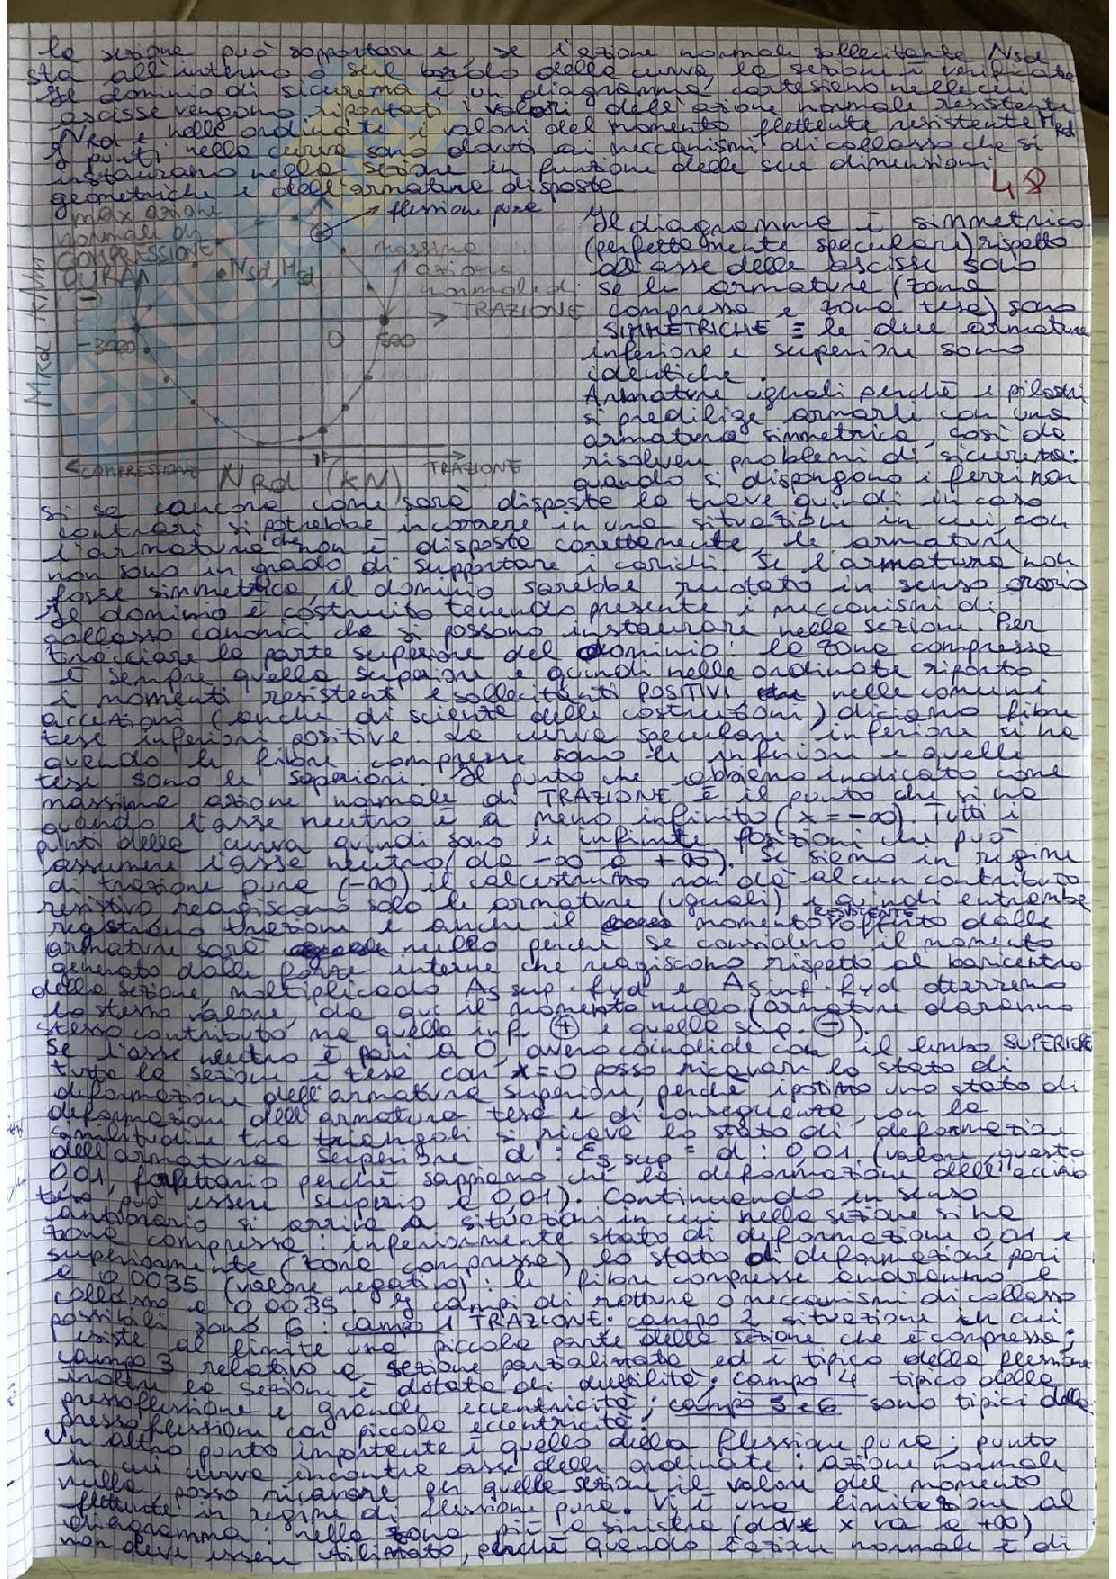 la sezione può sopportare e se l'azione normale sollecitante Nsd
sta all'interno o sul bordo della curva, la sezione è verificata
Il dominio di sicurezza è un diagramma cartesiano nelle cui
ascisse vengono riportati i valori dell'azione normale resistente
NRd e nelle ordinate i valori del momento flettente resistente MRd
I punti nella curva sono dovuti ai meccanismi di collasso che si
instaurano nella sezione in funzione delle sue dimensioni
geometriche e dell'armature disposte
48
max azione
normale di
COMPRESSIONE
flessione pura
Nsd, Md
massima
azione
normale di
TRAZIONE
-3000
0
MRd KNm
COMPRESSIONE
NRd (KN)
TRAZIONE
Il diagramma è simmetrico
(perfettamente speculare) rispetto
all'asse delle ascisse solo
se le armature (zona
compressa e zona tesa) sono
SIMMETRICHE = le due armature
inferiore e superiore sono
identiche.
Armature uguali perché i pilastri
si predilige armarli con una
armatura simmetrica, così da
risolvere problemi di sicurezza:
quando si dispongono i ferri non
si sa ancora come sarà disposta la trave quindi in caso
contrario si potrebbe incorrere in una situazione in cui, con
l'armatura che non è disposta correttamente, le armature
non sono in grado di supportare i carichi. Se l'armatura non
fosse simmetrica, il dominio sarebbe ruotato in senso orario
Il dominio è costruito tenendo presente i meccanismi di
collasso canonici che si possono instaurare nella sezione. Per
tracciare la parte superiore del dominio: la zona compressa
è sempre quella superiore e quindi nelle ordinate riporto
i momenti resistenti e sollecitanti POSITIVI nelle comuni
accezioni (anche di scienza delle costruzioni) diciamo fibre
tese inferiori positive. La curva speculare inferiore si ha
quando le fibre compresse sono le inferiori e quelle
tese sono le superiori. Il punto che abbiamo indicato come
massima azione normale di TRAZIONE è il punto che si ha
quando l'asse neutro è a meno infinito (x = -∞). Tutti i
punti della curva quindi sono le infinite posizioni che può
assumere l'asse neutro (da -∞ a +∞). Se siamo in regime
di trazione pura (-∞) il calcestruzzo non dà alcun contributo
resistivo reagiscono solo le armature (uguali) e quindi entrambe
registrano trazione e anche il momento RESISTENTE offerto dalle
armature sarà nullo perché se considero il momento
generato dalle forze interne che reagiscono rispetto al baricentro
della sezione, moltiplicado As sup · fyd e As inf · fyd otterremo
lo stesso valore, da qui il momento nullo (armature daranno
stesso contributo ma quella inf. ⊕ e quella sup. ⊖).
Se l'asse neutro è pari a 0, ovvero coincide con il lembo SUPERIORE
tutta la sezione è tesa con x=0 posso ricavare lo stato di
deformazione dell'armatura superiore, perché ipotizzo uno stato di
deformazione dell'armatura tesa e di conseguenza, con la
similitudine tra triangoli si ricava lo stato di deformazione
dell'armatura superiore d': εs sup = d : 0,01 (valore questo
0,01, perché sappiamo che la deformazione dell'acciaio
teso può essere a 0,01). Continuando in senso
antiorario si arriva a situazioni in cui nella sezione si ha
zona compressa: inferiormente stato di deformazione 0,01 e
superiormente (zona compressa) lo stato di deformazione pari
a 0,0035 (valore negativo): le fibre compresse andranno a
collasso a 0,0035. I campi di rottura o meccanismi di collasso
possibili sono 6: campo 1 TRAZIONE; campo 2 situazione in cui
esiste al limite una piccola parte della sezione che è compressa;
campo 3 relativo a sezione parzializzata ed è tipico della flessione
inoltre la sezione è dotata di duttilità; campo 4 tipico della
pressoflessione a grande eccentricità; campo 5 e 6 sono tipici della
pressoflessione con piccola eccentricità.
Un altro punto importante è quello della flessione pura: punto
in cui curva incontra asse delle ordinate: azione normale
nulla posso ricavare per quella sezione il valore del momento
flettente in regime di flessione pura. Vi è una limitazione al
diagramma: nella zona più a sinistra (dove x va a +∞)
non deve essere utilizzato, perché quando l'azione normale è di